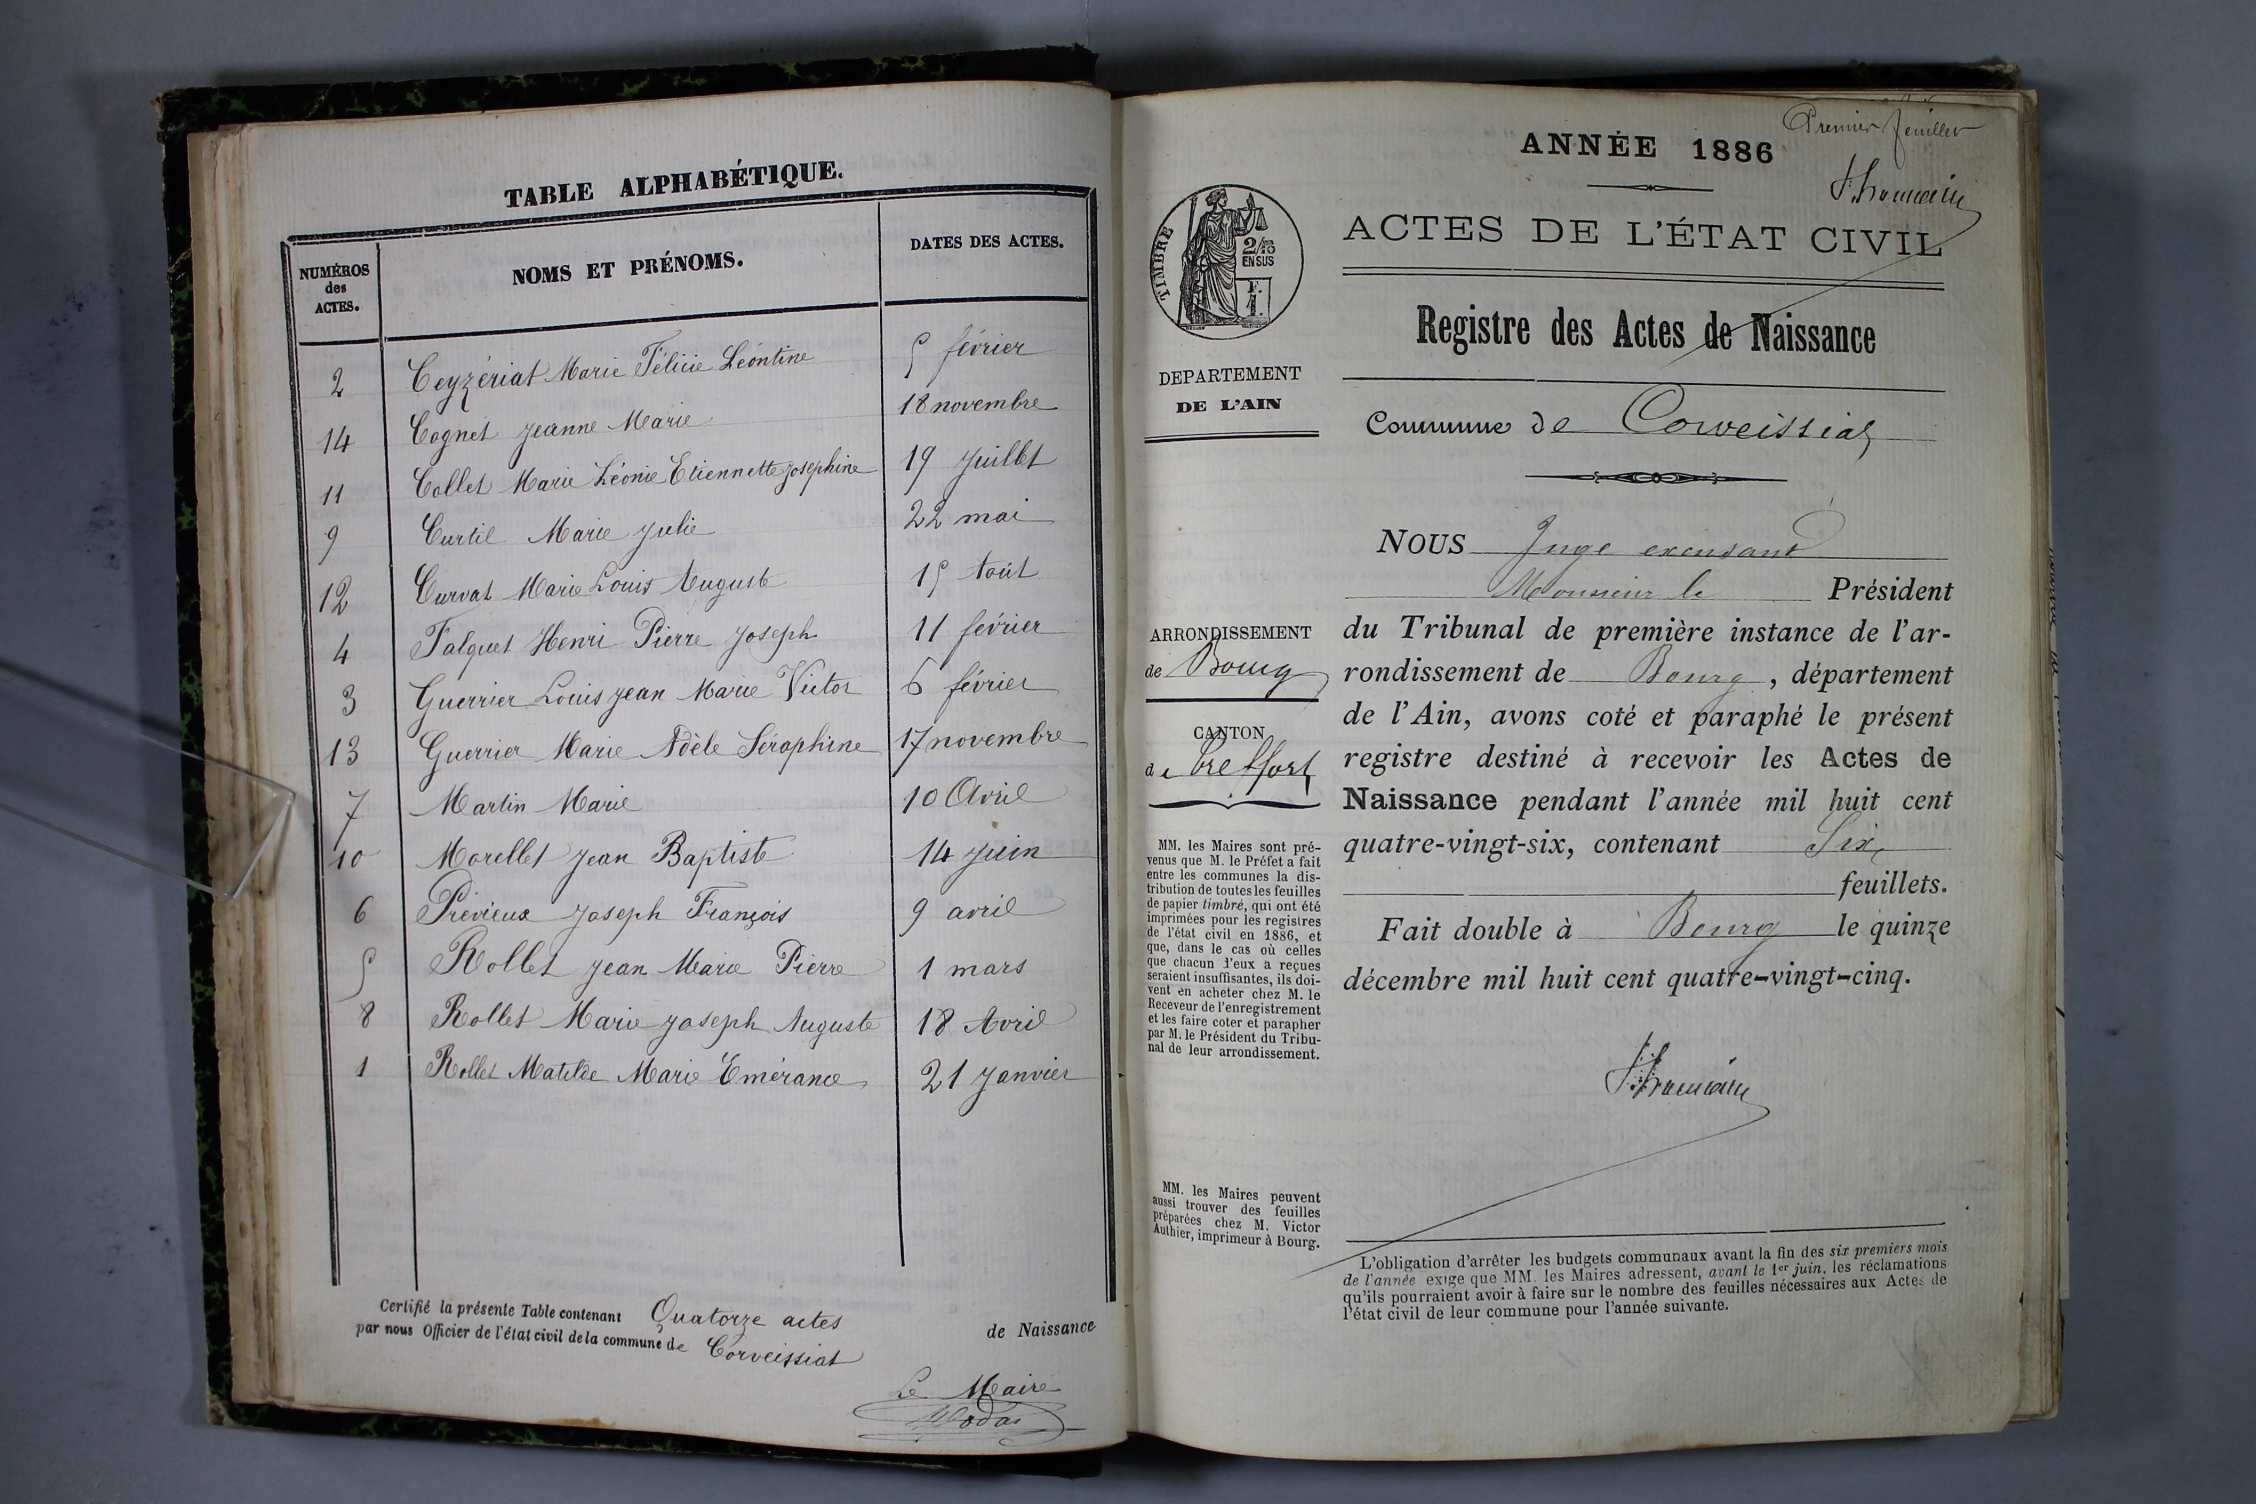 TABLE ALPHABÉTIQUE.
NUMÉROS des ACTES.
NOMS ET PRÉNOMS.
DATES DES ACTES.
2 Ceyzériat Marie Félicie Léontine 5 février
14 Cognet Jeanne Marie 18 novembre
11 Collet Marie Léonie Etiennette Josephine 19 Juillet
9 Curtil Marie Julie 22 mai
12 Curvat Marie Louis Auguste 15 Août
4 Falquet Henri Pierre Joseph 11 février
3 Guerrier Louis Jean Marie Victor 6 février
13 Guerrier Marie Adèle Séraphine 17 novembre
7 Martin Marie 10 Avril
10 Morellet Jean Baptiste 14 Juin
6 Prévieux Joseph François 9 avril
5 Rollet Jean Marie Pierre 1 mars
8 Rollet Marie Joseph Auguste 18 Avril
1 Rollet Matilde Marie Emérance 21 Janvier
Certifié la présente Table contenant Quatorze actes de Naissance
par nous Officier de l'état civil de la commune de Corveissiat
Le Maire
Premier feuillet
ANNÉE 1886
ACTES DE L'ÉTAT CIVIL
TIMBRE
2/10
EN SUS
F.
1.
Registre des Actes de Naissance
DEPARTEMENT
DE L'AIN
Commune de Corveissiat
NOUS Juge
Monsieur le Président
du Tribunal de première instance de l'ar-
rondissement de Bourg, département
de l'Ain, avons coté et paraphé le présent
registre destiné à recevoir les Actes de
Naissance pendant l'année mil huit cent
quatre-vingt-six, contenant Six
feuillets.
Fait double à Bourg le quinze
décembre mil huit cent quatre-vingt-cinq.
ARRONDISSEMENT
de Bourg
CANTON
de Treffort
MM. les Maires sont pré-
venus que M. le Préfet a fait
entre les communes la dis-
tribution de toutes les feuilles
de papier timbré, qui ont été
imprimées pour les registres
de l'état civil en 1886, et
que, dans le cas où celles
que chacun d'eux a reçues
seraient insuffisantes, ils doi-
vent en acheter chez M. le
Receveur de l'enregistrement
et les faire coter et parapher
par M. le Président du Tribu-
nal de leur arrondissement.
MM. les Maires peuvent
aussi trouver des feuilles
préparées chez M. Victor
Authier, imprimeur à Bourg.
L'obligation d'arrêter les budgets communaux avant la fin des six premiers mois
de l'année exige que MM. les Maires adressent, avant le 1er juin, les réclamations
qu'ils pourraient avoir à faire sur le nombre des feuilles nécessaires aux Actes de
l'état civil de leur commune pour l'année suivante.